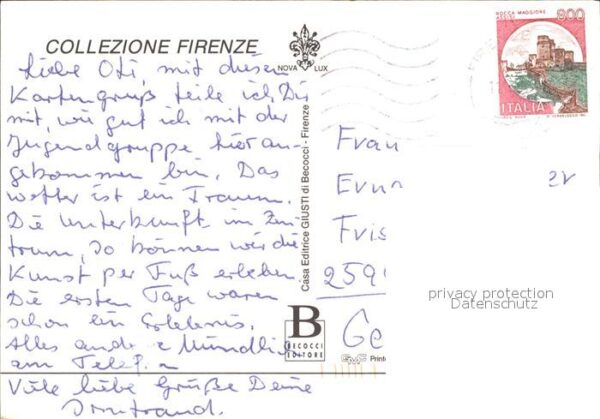 COLLEZIONE FIRENZE
NOVA LUX
Liebe Oti, mit diesem
Kartengruß teile ich Dir
mit, wie gut ich mit der
Jugendgruppe hier an-
gekommen bin. Das
Wetter ist ein Traum.
Die Unterkunft im Zen-
trum, so können wir die
Kunst per Fuß erleben.
Die ersten Tage waren
schon ein Erlebnis.
Alles andere Mündlich
am Telefon
Viele liebe Grüße Deine
Casa Editrice GIUSTI di Becocci - Firenze
B
BECOCCI
EDITORE
ROCCA MAGGIORE
ASSISI
800
ITALIA
Frau
Erun
er
Fris
259
Ge
privacy protection
Datenschutz